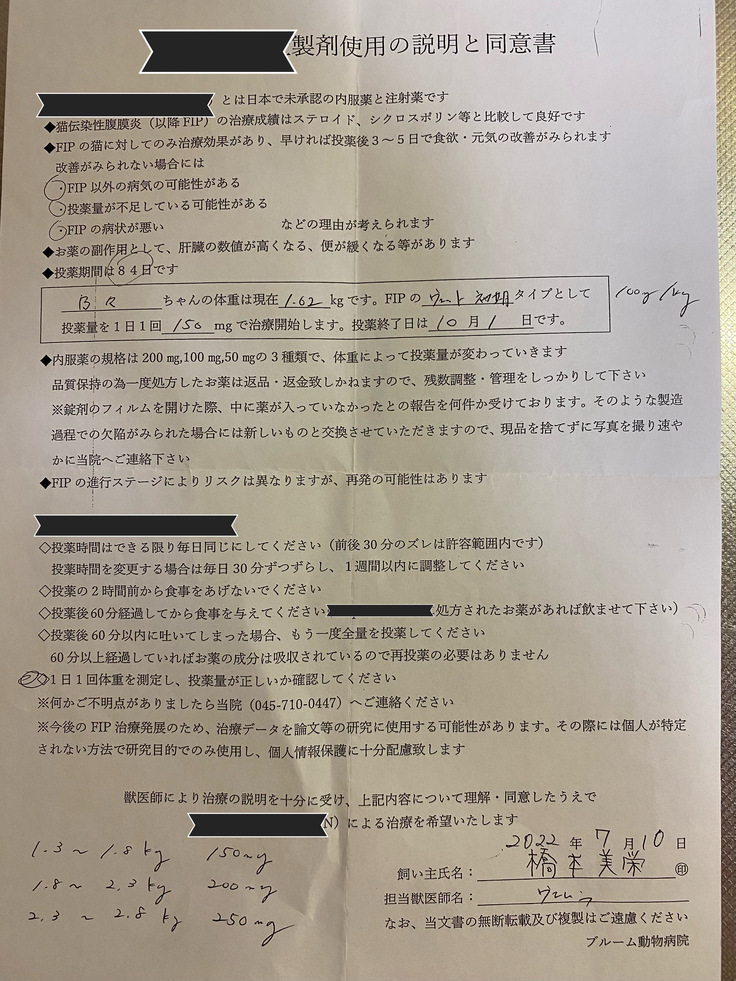 製剤使用の説明と同意書
とは日本で未承認の内服薬と注射薬です
◆猫伝染性腹膜炎（以降 FIP）の治療成績はステロイド、シクロスポリン等と比較して良好です
◆FIP の猫に対してのみ治療効果があり、早ければ投薬後３～５日で食欲・元気の改善がみられます
改善がみられない場合には
・FIP 以外の病気の可能性がある
・投薬量が不足している可能性がある
・FIP の病状が悪い　などの理由が考えられます
◆お薬の副作用として、肝臓の数値が高くなる、便が緩くなる等があります
◆投薬期間は８４日です
ちゃんの体重は現在 1.62 kg です。FIP の ウェット初期 タイプとして
100g/kg
投薬量を１日１回 150 mg で治療開始します。投薬終了日は 10 月 1 日です。
◆内服薬の規格は 200 mg,100 mg,50 mgの３種類で、体重によって投薬量が変わっていきます
品質保持の為一度処方したお薬は返品・返金致しかねますので、残数調整・管理をしっかりして下さい
※錠剤のフィルムを開けた際、中に薬が入っていなかったとの報告を何件か受けております。そのような製造
過程での欠陥がみられた場合には新しいものと交換させていただきますので、現品を捨てずに写真を撮り速や
かに当院へご連絡下さい
◆FIP の進行ステージによりリスクは異なりますが、再発の可能性はあります
◇投薬時間はできる限り毎日同じにしてください（前後 30 分のズレは許容範囲内です）
投薬時間を変更する場合は毎日 30 分ずつずらし、１週間以内に調整してください
◇投薬の２時間前から食事をあげないでください
◇投薬後 60 分経過してから食事を与えてください 処方されたお薬があれば飲ませて下さい）
◇投薬後 60 分以内に吐いてしまった場合、もう一度全量を投薬してください
60 分以上経過していればお薬の成分は吸収されているので再投薬の必要はありません
◇１日１回体重を測定し、投薬量が正しいか確認してください
※何かご不明点がありましたら当院（045-710-0447）へご連絡ください
※今後の FIP 治療発展のため、治療データを論文等の研究に使用する可能性があります。その際には個人が特定
されない方法で研究目的でのみ使用し、個人情報保護に十分配慮致します
獣医師により治療の説明を十分に受け、上記内容について理解・同意したうえで
N）による治療を希望いたします
2022 年 7 月 10 日
飼い主氏名： 橋本美栄 ㊞
担当獣医師名：
なお、当文書の無断転載及び複製はご遠慮ください
ブルーム動物病院
1.3 ～ 1.8 kg 150mg
1.8 ～ 2.3 kg 200mg
2.3 ～ 2.8 kg 250mg